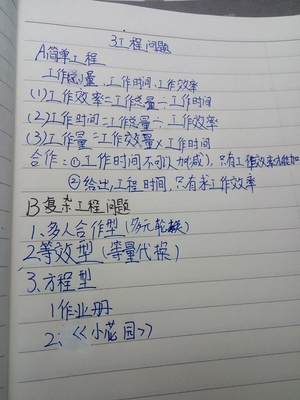 3工程问题
A简单工程
工作总量、工作时间、工作效率
(1)工作效率=工作总量÷工作时间
(2)工作时间=工作总量÷工作效率
(3)工作量=工作效量×工作时间
合作:①工作时间不可以加减),只有工作效率方能加
②给出工程时间,只有求工作效率
B复杂工程问题
1、多人合作型(多元轮换)
2等效型(等量代换)
3、方程型
1作业册
2、《小花园》